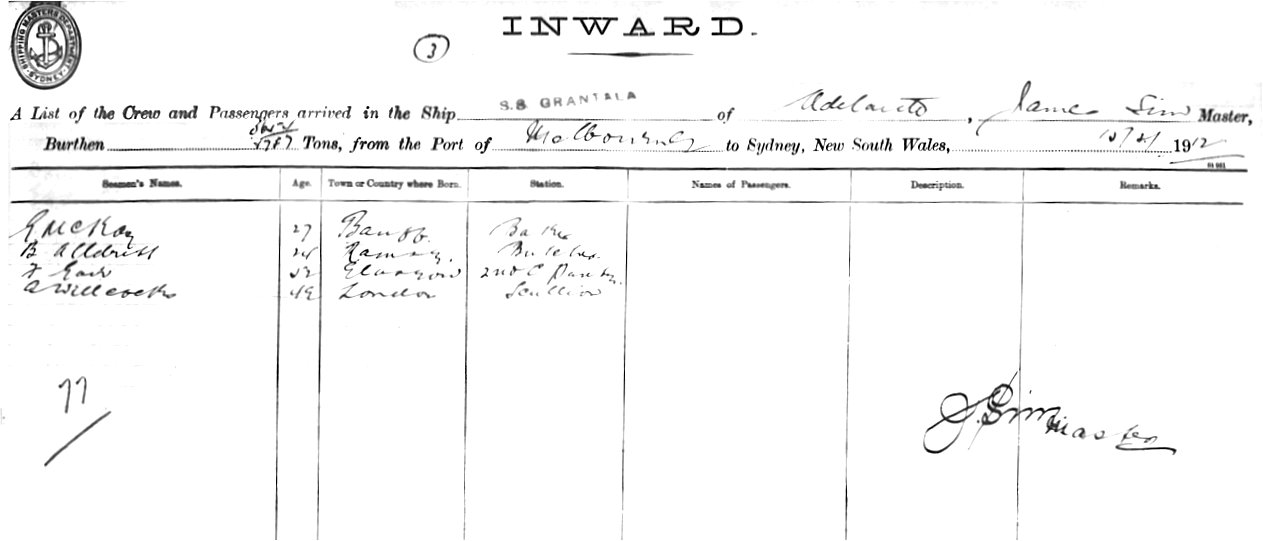 SHIPPING MASTERS DEPARTMENT SYDNEY
INWARD.
3
A List of the Crew and Passengers arrived in the Ship S.S GRANTALA of Adelaide, James Sim Master,
Burthen Tons, from the Port of Melbourne to Sydney, New South Wales, 1912
Seamen's Names. Age. Town or Country where Born. Station. Names of Passengers. Description. Remarks.
McKay 27 Banff Baker
B Alldritt Ramsey. Butcher
F Glasgow 2nd C Pantry
A Willcocks 49 London Scullion
77
J. Sim Master